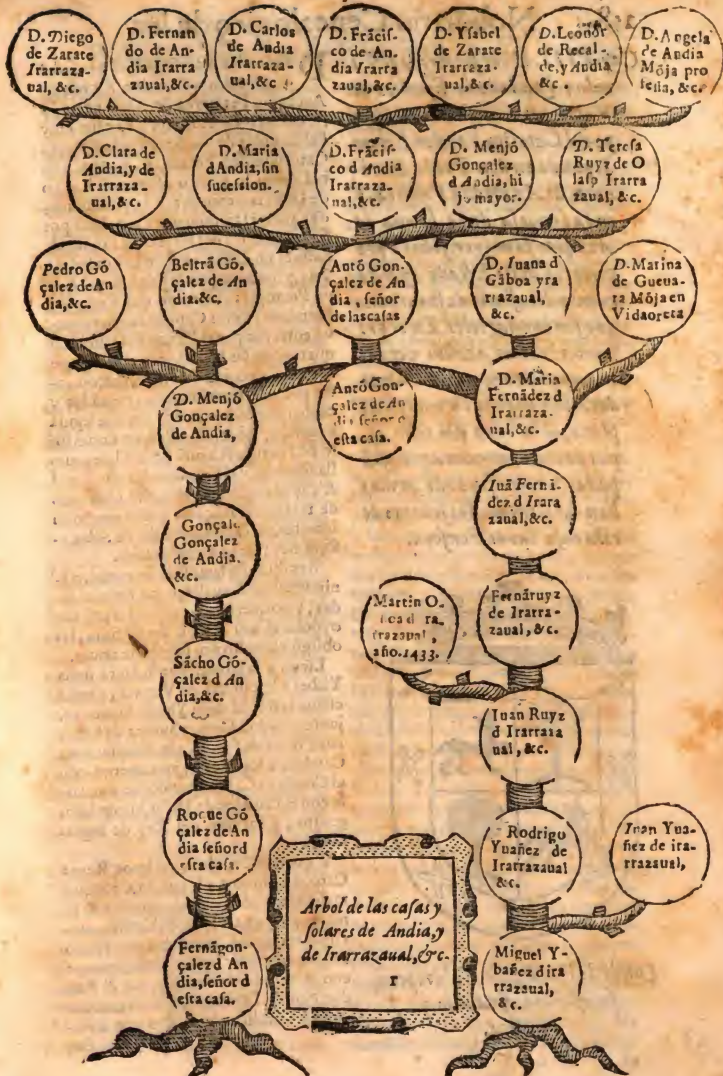 D. Diego
de Zarate
Irarraza-
ual, &c.
D. Fernan
do de An-
dia Irarra
zaual, &c.
D. Carlos
de Andia
Irarraza-
ual, &c
D. Frãcis-
co de An-
dia Irarra
zaual, &c.
D. Ysabel
de Zarate
Irarraza-
ual, &c.
D. Leonor
de Recal-
de, y Andia
&c.
D. Angela
de Andia
Mõja pro
fessa, &c.
D. Clara de
Andia, y de
Irarraza-
ual, &c.
D. Maria
d Andia, sin
sucession.
D. Frãcis-
co d Andia
Irarraza-
ual, &c.
D. Menjó
Gonçalez
d Andia, hi
jo mayor.
D. Teresa
Ruyz de O
laso Irarra
zaual, &c.
Pedro Gó
çalez de An
dia, &c.
Beltrã Gó.
çalez de An
dia. &c.
Antó Gon-
çalez de An
dia, señor
de las casas
D. Iuana d
Gãboa yra
rrazaual,
&c.
D. Marina
de Gueua-
ra Mõja en
Vidaoreta
D. Menjó
Gonçalez
de Andia,
Antó Gon-
çalez de An
dia señor d
esta casa.
D. Maria
Fernãdez d
Irarraza-
ual, &c.
Gonçal
Gonçalez
de Andia.
&c.
Iuã Ferni-
dez d Irara
zaual, &c.
Martin O-
ra-
rrazaual,
año. 1433.
Fernãruyz
de Irarra-
zaual, &c.
Sãcho Gó-
çalez d An
dia, &c.
Iuan Ruyz
d Irarraza
ual, &c.
Roque Gó
çalez de An
dia señor d
esta casa.
Rodrigo
Yuañez de
Irarrazaual
&c.
Iuan Yua-
ñez de ira-
rrazaual,
Arbol de las casas y
solares de Andia, y
de Irarrazaual, &c.
I
Fernãgon-
çalez d An
dia, señor d
esta casa.
Miguel Y-
bañez d ira
rrazaual,
&c.